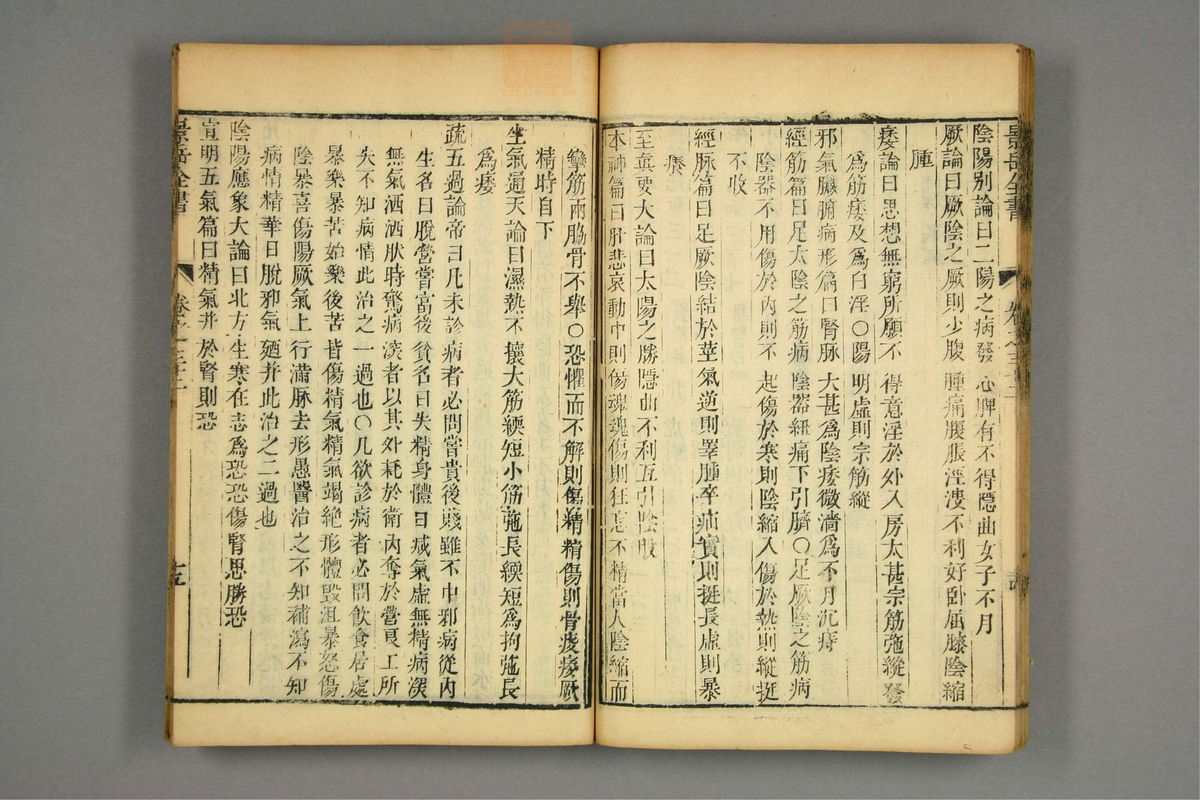 景岳全書 卷之三十二
陰陽别論曰二陽之病發心脾有不得隱曲女子不月
厥論曰厥陰之厥則少腹腫痛腹脹涇溲不利好卧屈膝陰縮
腫
痿論曰思想無窮所願不得意淫於外入房太甚宗筋弛縱發
爲筋痿及爲白淫○陽明虛則宗筋縱
邪氣臟腑病形篇曰腎脉大甚爲陰痿微濇爲不月沉痔
經筋篇曰足太陰之筋病陰器紐痛下引臍○足厥陰之筋病
陰器不用傷於內則不起傷於寒則陰縮入傷於熱則縱挺
不收
經脉篇曰足厥陰結於莖氣逆則睪腫卒疝實則挺長虛則暴
癢
至真要大論曰太陽之勝隱曲不利互引陰股
本神篇曰肝悲哀動中則傷魂魂傷則狂忘不精當人陰縮而
攣筋兩脇骨不舉○恐懼而不解則傷精精傷則骨痠痿厥
精時自下
生氣通天論曰濕熱不攘大筋緛短小筋弛長緛短爲拘弛長
爲痿
疏五過論帝曰凡未診病者必問嘗貴後賤雖不中邪病從內
生名曰脫營嘗富後貧名曰失精身體日减氣虛無精病深
無氣洒洒肰時驚病深者以其外耗於衛內奪於營良工所
失不知病情此治之一過也○凡欲診病者必問飲食居處
暴樂暴苦始樂後苦皆傷精氣精氣竭絶形體毀沮暴怒傷
陰暴喜傷陽厥氣上行滿脉去形愚醫治之不知補瀉不知
病情精華日脫邪氣廼并此治之二過也
陰陽應象大論曰北方生寒在志爲恐恐傷腎思勝恐
宣明五氣篇曰精氣并於腎則恐
景岳全書 卷之三十二 十五